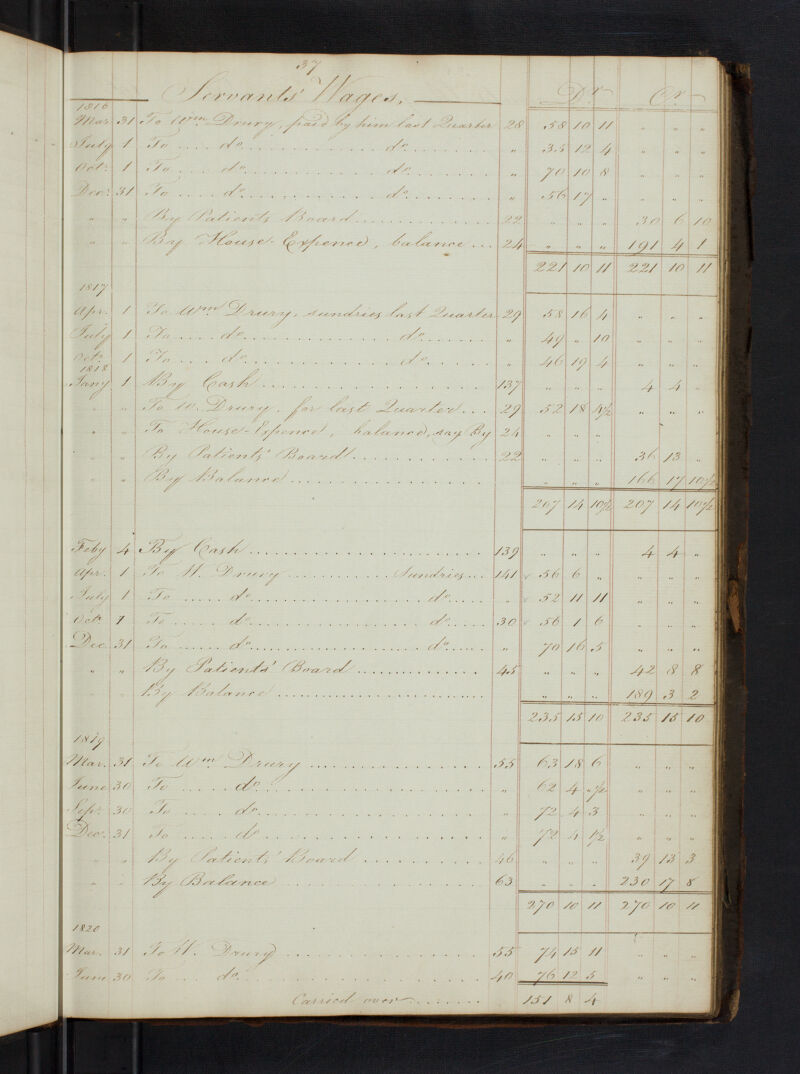 37
Servants' Wages. Dr. Cr.
1816
Mar. 31 To Wm Drury, paid by him last Quarter 28 58 10 11 " " "
July 1 To .... do. .... do. .... " 35 12 4 " " "
Octr. 1 To .... do. .... do. .... " 70 10 8 " " "
Dec. 31 To .... do. .... do. .... " 56 17 " " " "
" " By Patients Board .... 22 " " " 30 6 10
" " By House-Expence, balance ... 24 " " " 191 4 1
221 10 11 221 10 11
1817
Apr. 1 To Wm Drury, sundries last Quarter 29 58 16 4 " " "
July 1 To .... do. .... do. .... " 49 " 10 " " "
Octr. 1 To .... do. .... do. .... " 46 19 4 " " "
1818
Jany 1 By Cash .... 137 " " " 4 4 "
" " To W. Drury, for last Quarter ... 29 52 18 4½ " " "
" " To House-Expence, balance, say By 24 " " "
" " By Patients' Board .... 22 " " " 36 13 "
" " By Balance .... " " " 166 17 10½
207 14 10½ 207 14 10½
Feby 4 By Cash .... 139 " " " 4 4 "
Apr. 1 To W. Drury .... Sundries ... 141 56 6 " " " "
July 1 To .... do. .... do. .... " 52 11 11 " " "
Octr. 1 To .... do. .... do. .... 30 56 1 6 " " "
Dec. 31 To .... do. .... do. .... " 70 16 5 " " "
" " By Patients' Board .... 45 " " " 42 8 8
" " By Balance .... " " " 189 3 2
235 15 10 235 15 10
1819
Mar. 31 To Wm Drury .... 55 63 18 6 " " "
June 30 To .... do. .... " 62 4 ½ " " "
Sepr. 30 To .... do. .... " 72 4 3 " " "
Dec. 31 To .... do. .... " 72 4 1½ " " "
" " By Patients' Board .... 46 " " " 39 13 3
" " By Balance .... 63 " " " 230 17 8
270 10 11 270 10 11
1820
Mar. 31 To W. Drury .... 55 74 15 11 " " "
June 30 To .... do. .... 40 76 12 5 " " "
Carried over .... 151 8 4